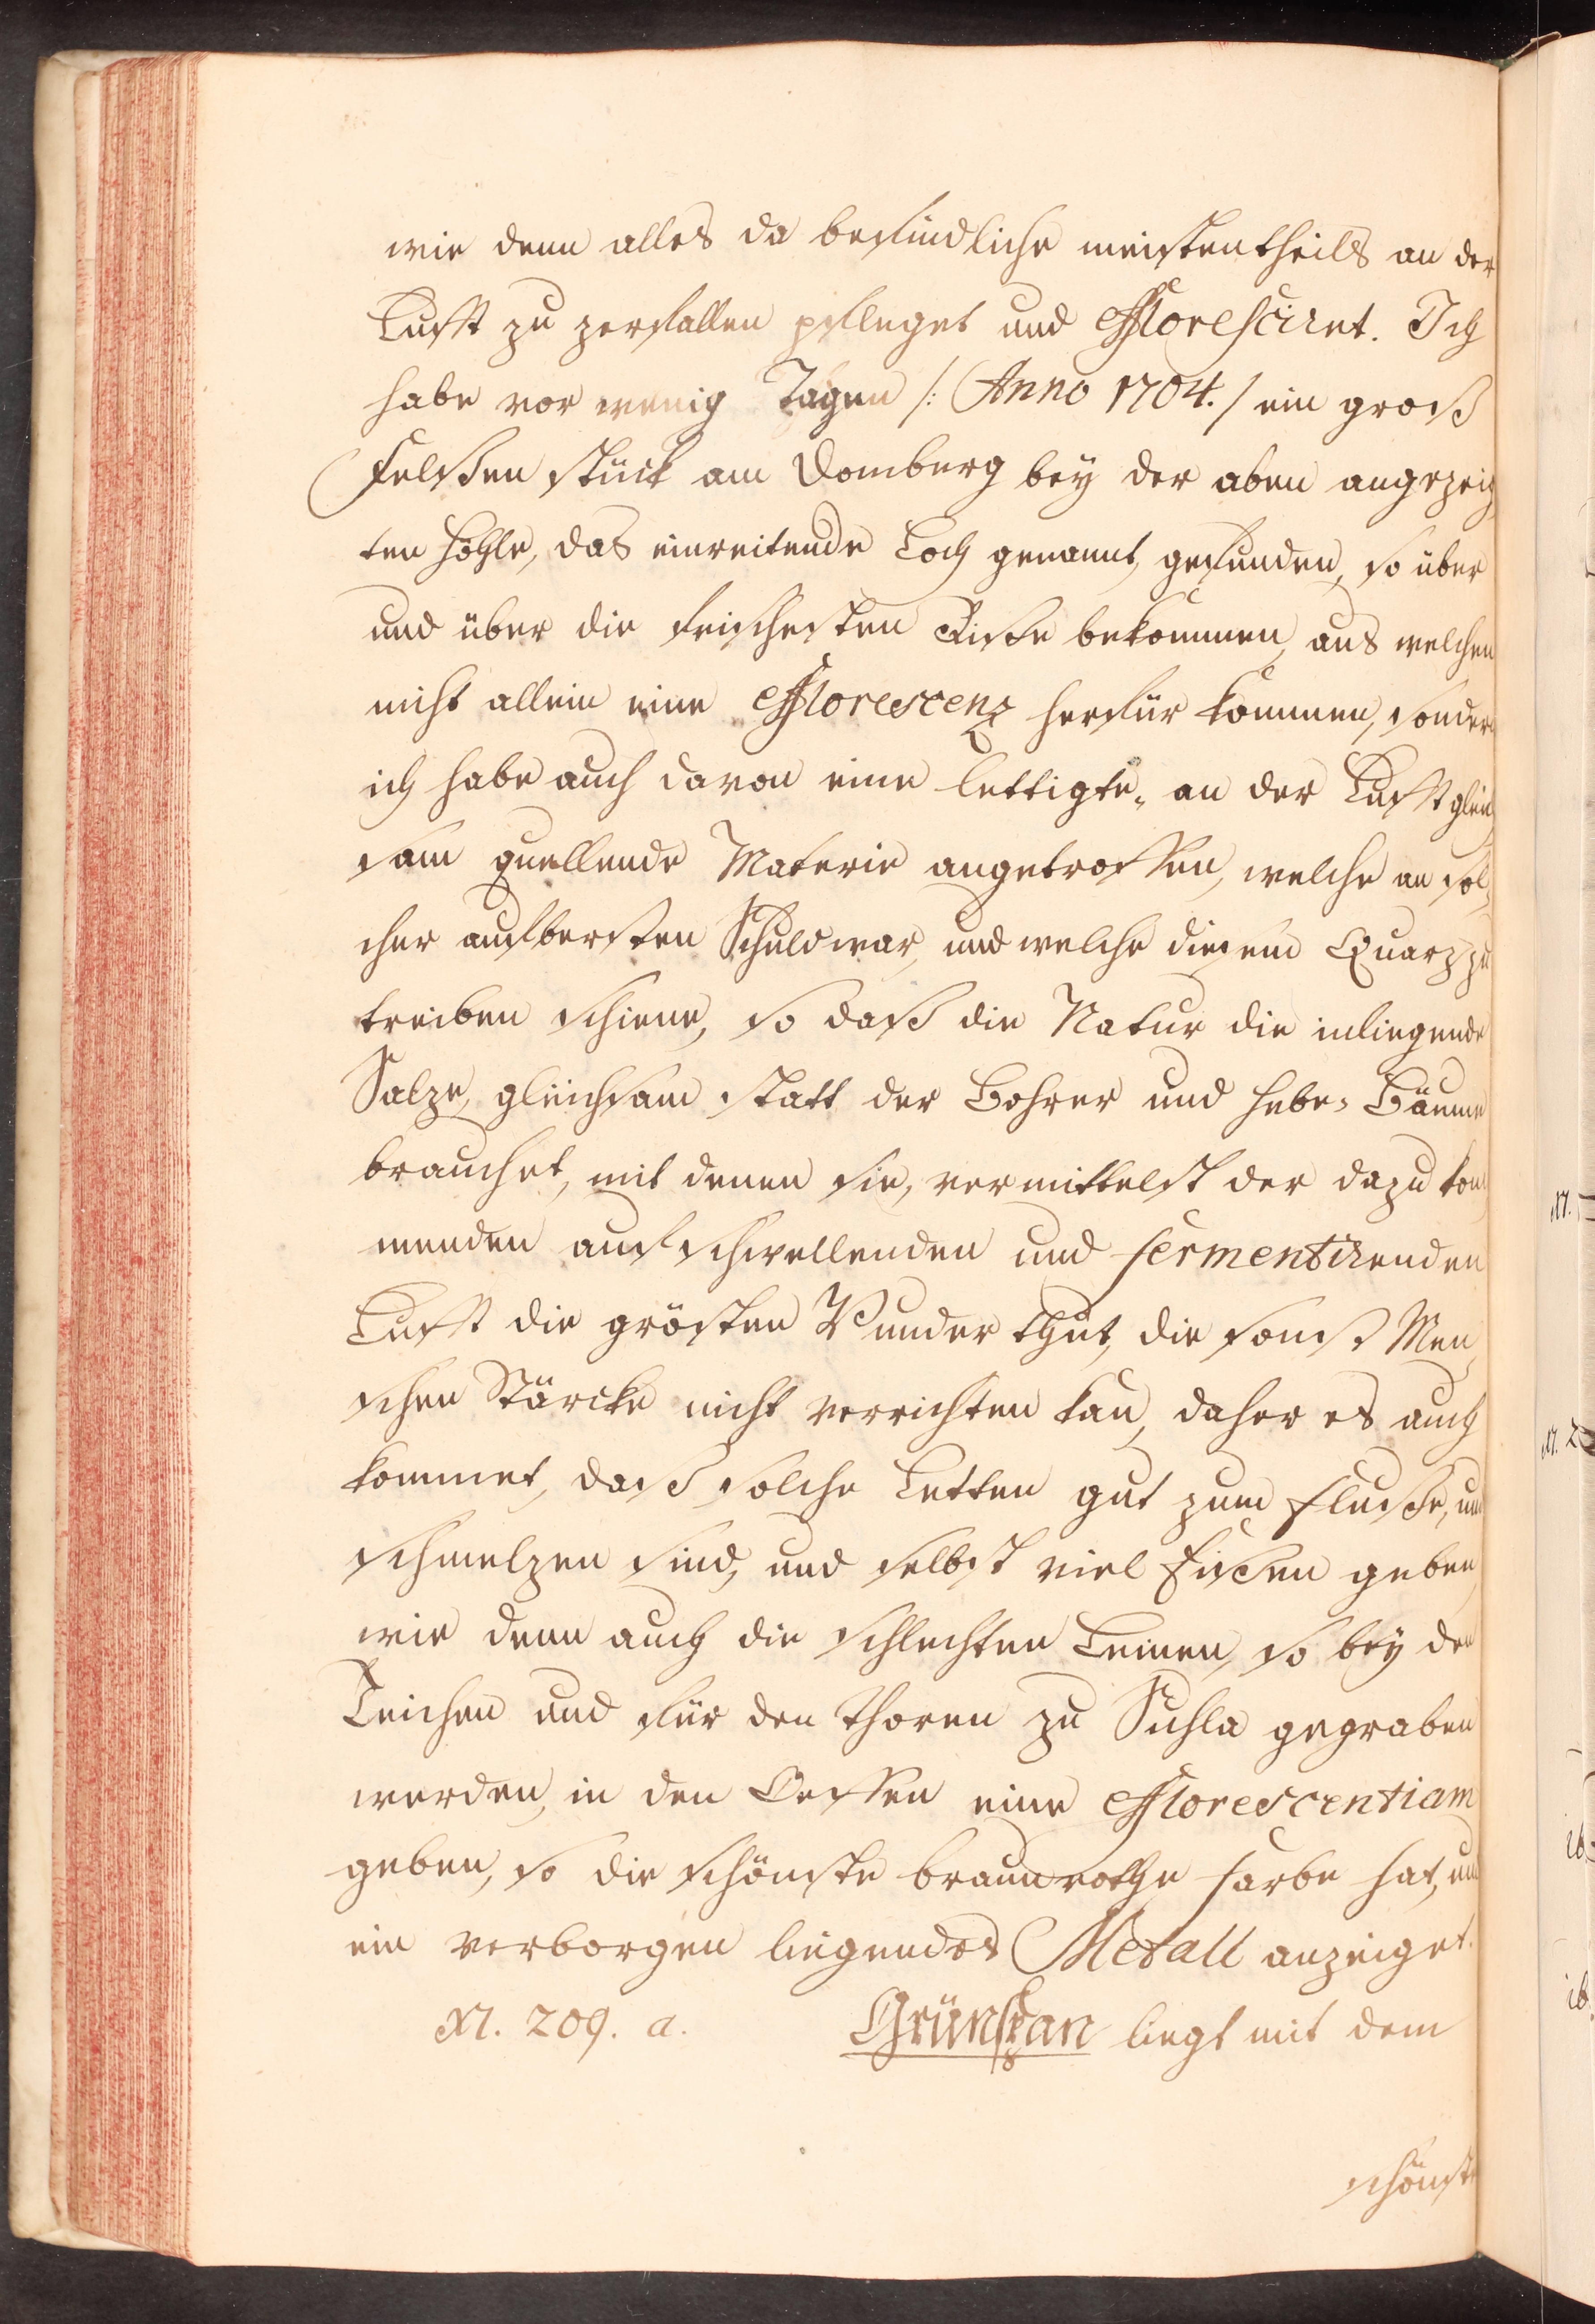 wie denn alles da befindliche meistentheils an der
Lufft zu zerfallen pfleget und effloresciret. Ich
habe vor wenig Tagen /: Anno 1704. / ein groß
Felßen stück am Domberg bey der oben angezeig
ten Höhle, das einreitende Loch genannt, gefunden, so über
und über die frischesten Riße bekommen, aus welchen
nicht allein eine Efflorescenz herfür kommen, sondern
ich habe auch davon eine lettigte, an der Lufft gleich
sam quellende Materie angetroffen, welche an sol
cher aufbersten Schuld war, und welche diesem Quarz zu
treiben schiene, so daß die Natur die inliegende
Salze, gleichsam statt der Bohrer und Hebe, Bäume
brauchet, mit denen sie, vermittelst der dazu kom
menden aufschwellenden und fermentirenden
Lufft die grösten Wunder thut, die sonst Men
schen Stärcke nicht verrichten kan, daher es auch
kommet, daß solche Letten gut zum Fluße, und
schmelzen sind, und selbst viel Eißen geben,
wie denn auch die schlechten Leimen, so bey den
Teichen und für den Thoren zu Suhla gegraben
werden, in den Oeffen eine Efflorescentiam
geben, so die schönste braunrothe Farbe hat, und
ein verborgen liegendes Metall anzeiget.
N. 209. a. Grünspan liegt mit dem
schönste